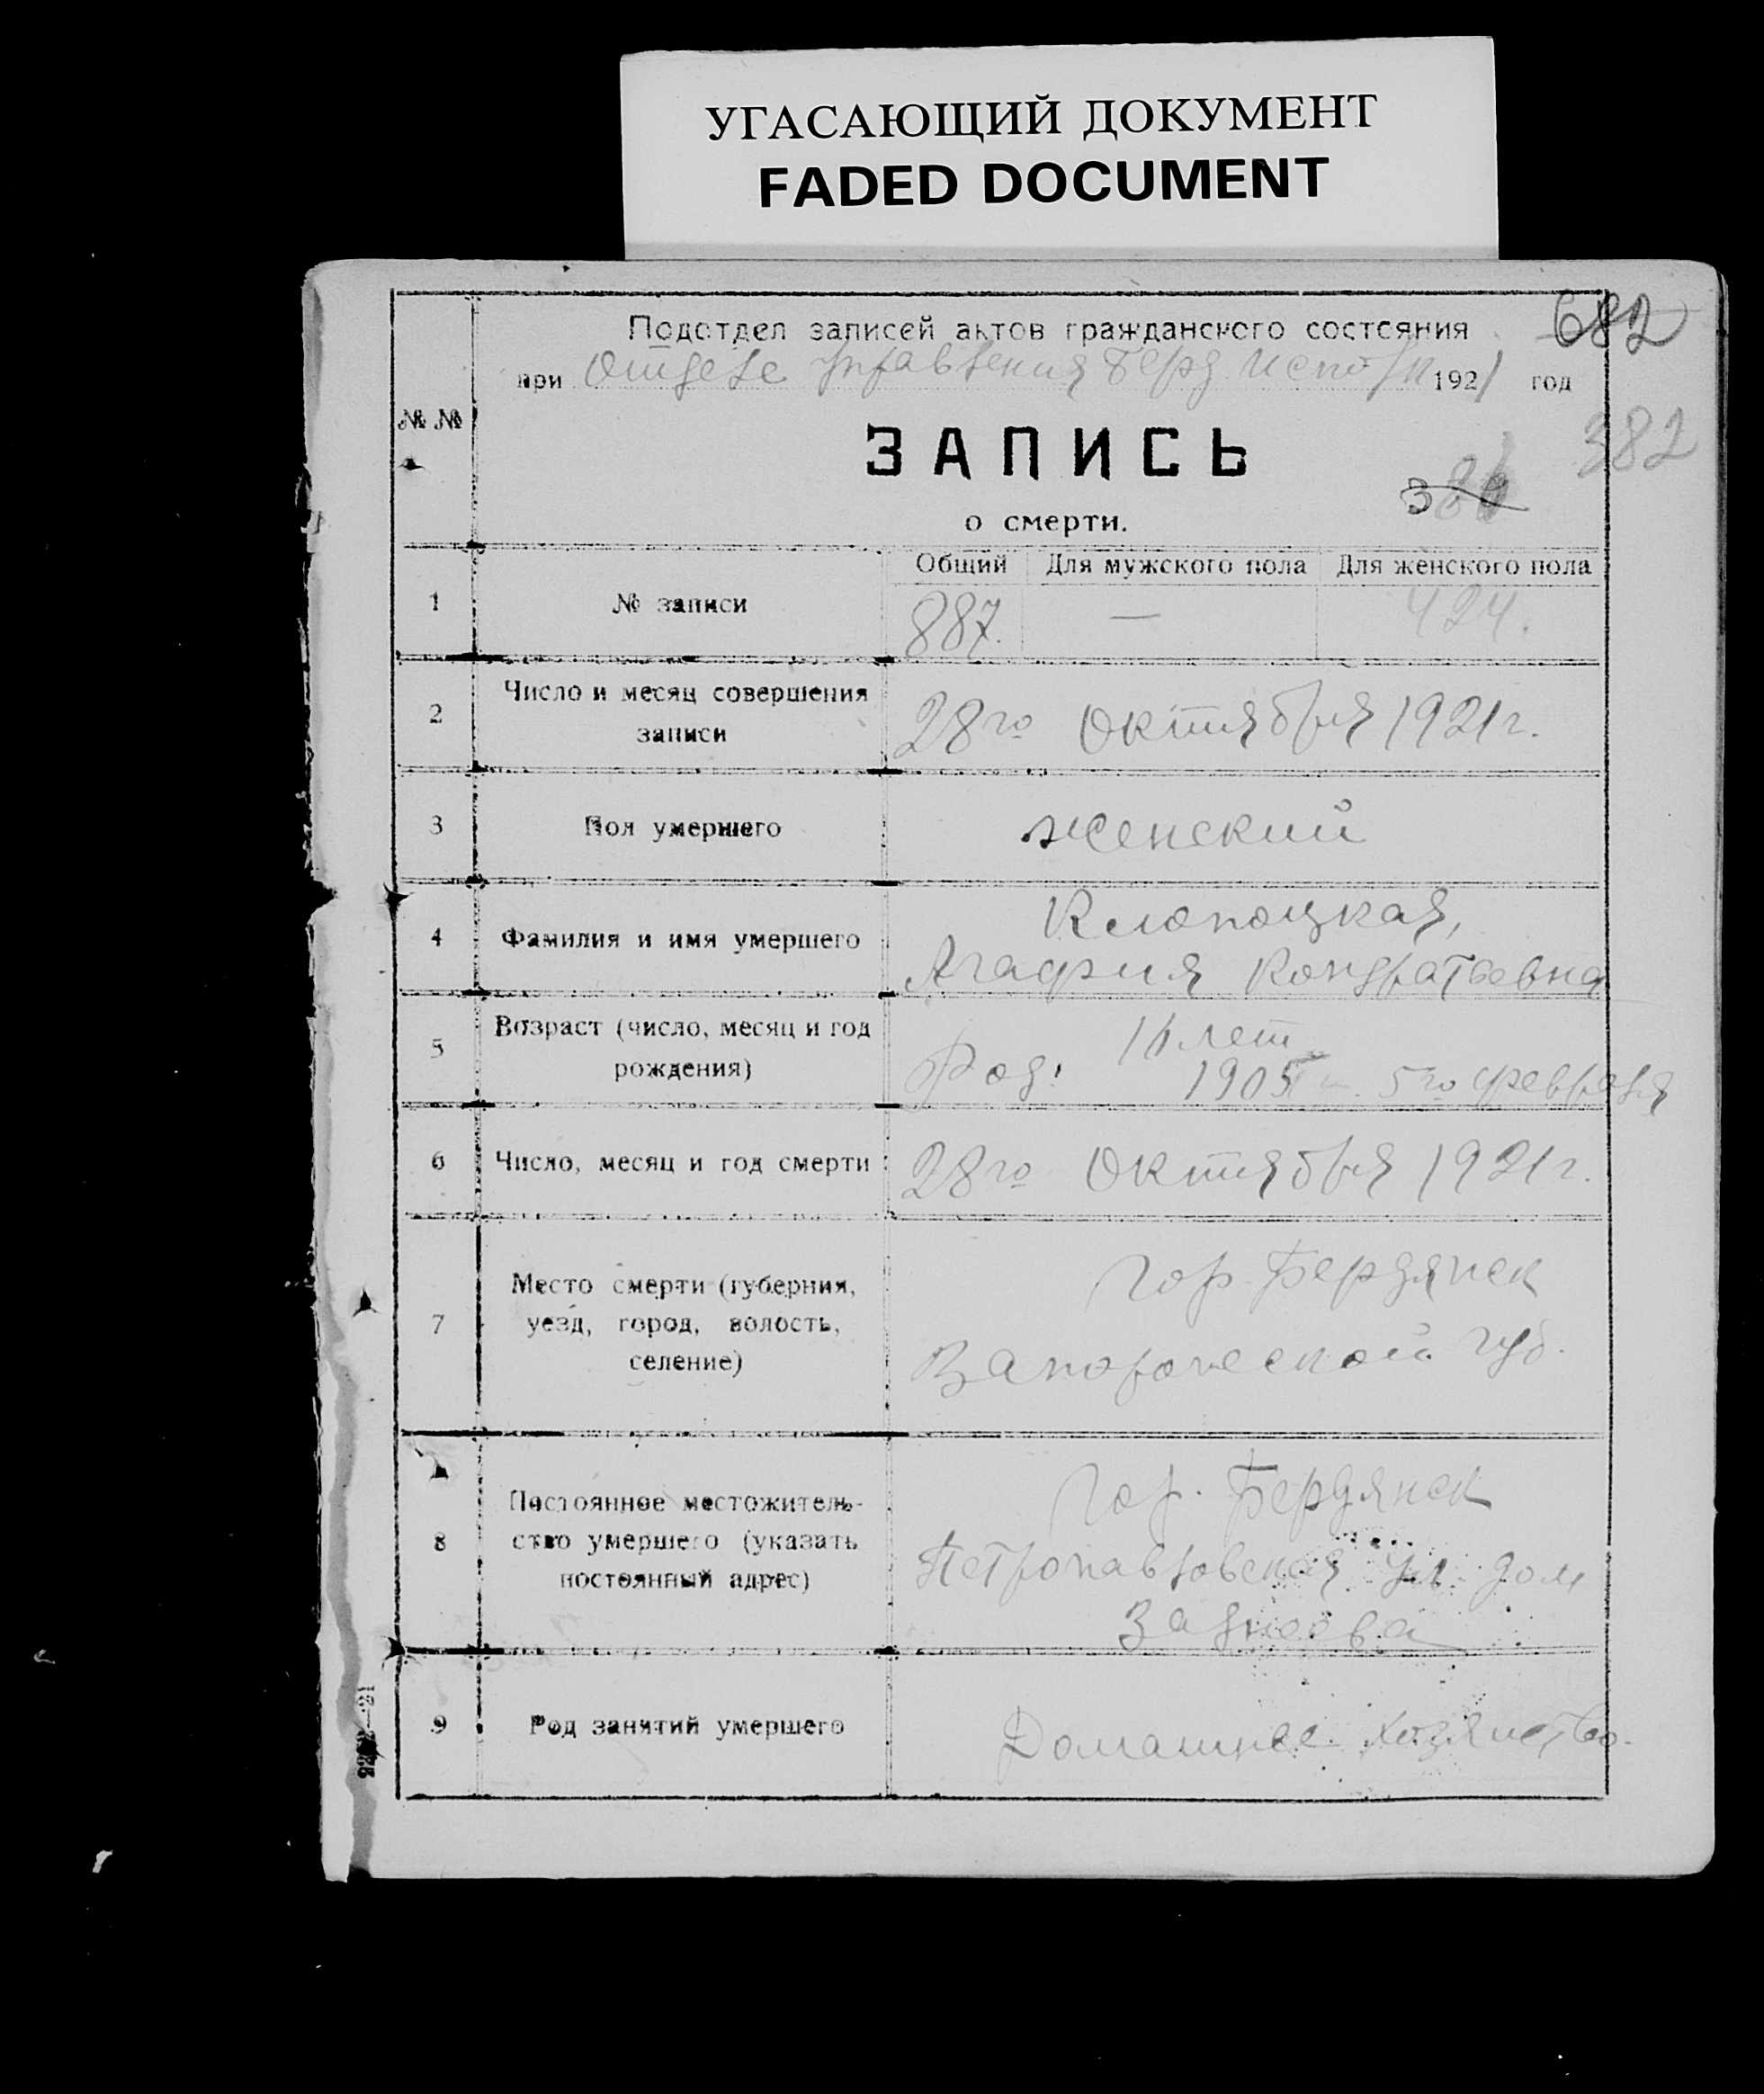 УГАСАЮЩИЙ ДОКУМЕНТ
FADED DOCUMENT
682
Подотдел записей актов гражданского состояния
при Отделе Управления Берд 1921 год
382
№ №
ЗАПИСЬ
о смерти.
Общий Для мужского пола Для женского пола
1 № записи 887. — 424.
2 Число и месяц совершения
записи
28го Октября 1921 г.
3 Пол умершего Женский
4 Фамилия и имя умершего
Клопоцкая,
Агафия Кондратьевна
5 Возраст (число, месяц и год
рождения)
16 лет
Род: 1905 г. 5го февраля
6 Число, месяц и год смерти 28го Октября 1921 г.
7 Место смерти (губерния,
уезд, город, волость,
селение)
Гор. Бердянск
Запорожской губ.
8 Постоянное местожитель-
ство умершего (указать
постоянный адрес)
Гор. Бердянск
Петропавловская ул. дом
9 Род занятий умершего Домашнее хозяйство.